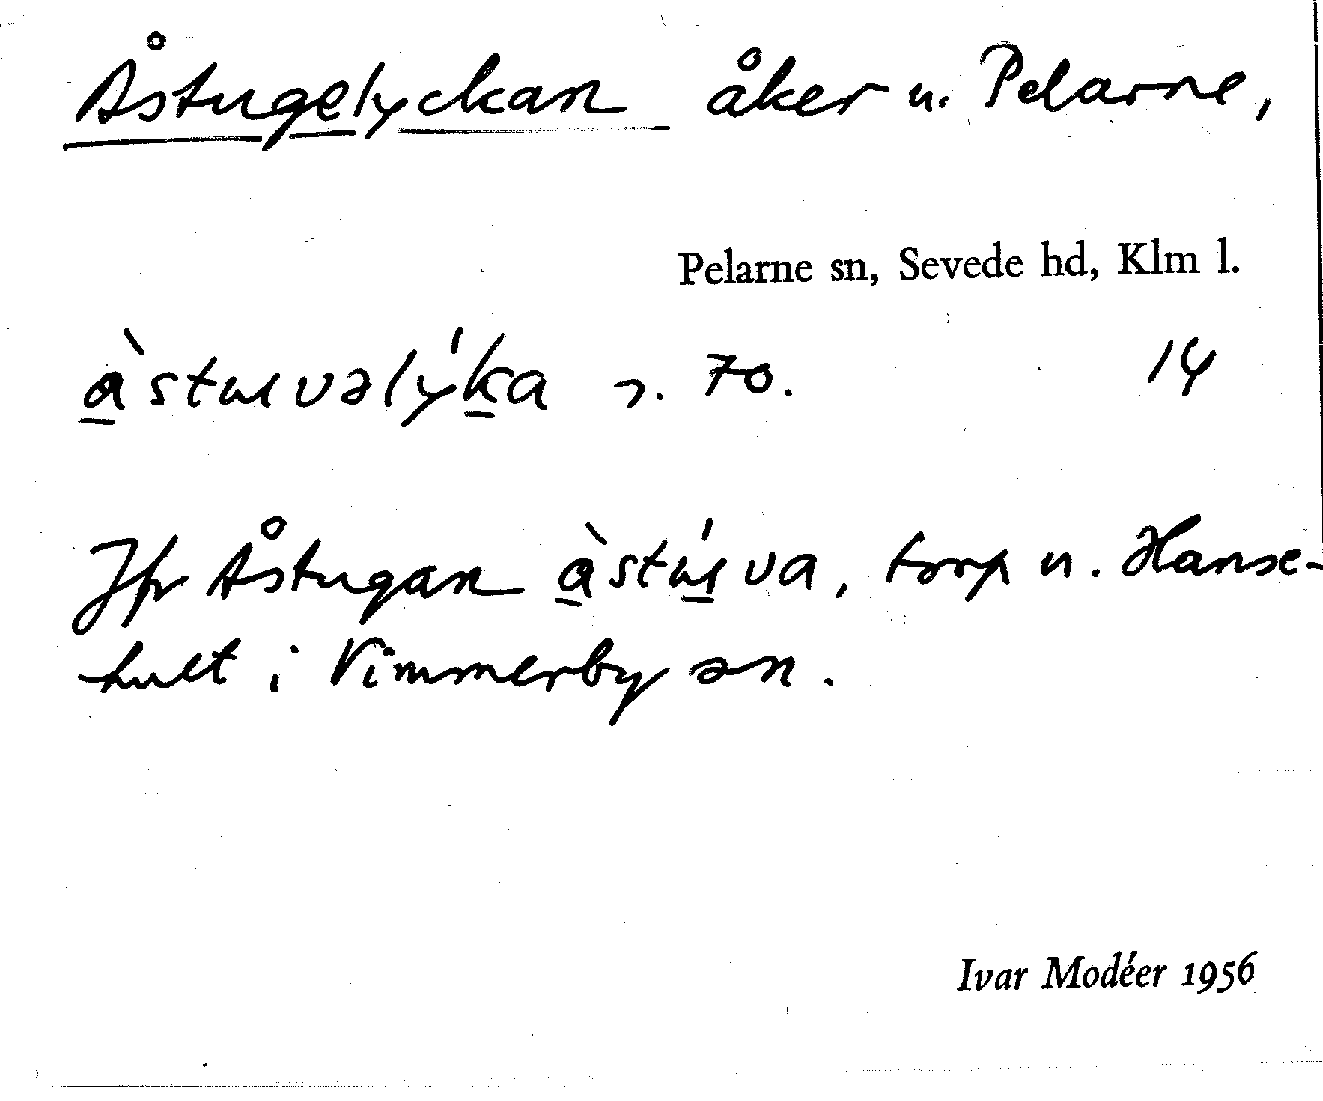 Åstugelyckan åker u. Pelarne,
Pelarne sn, Sevede hd, Klm l.
70. 14
Jfr Åstugan torp u. Hanse-
hult i Vimmerby sn.
Ivar Modéer 1956